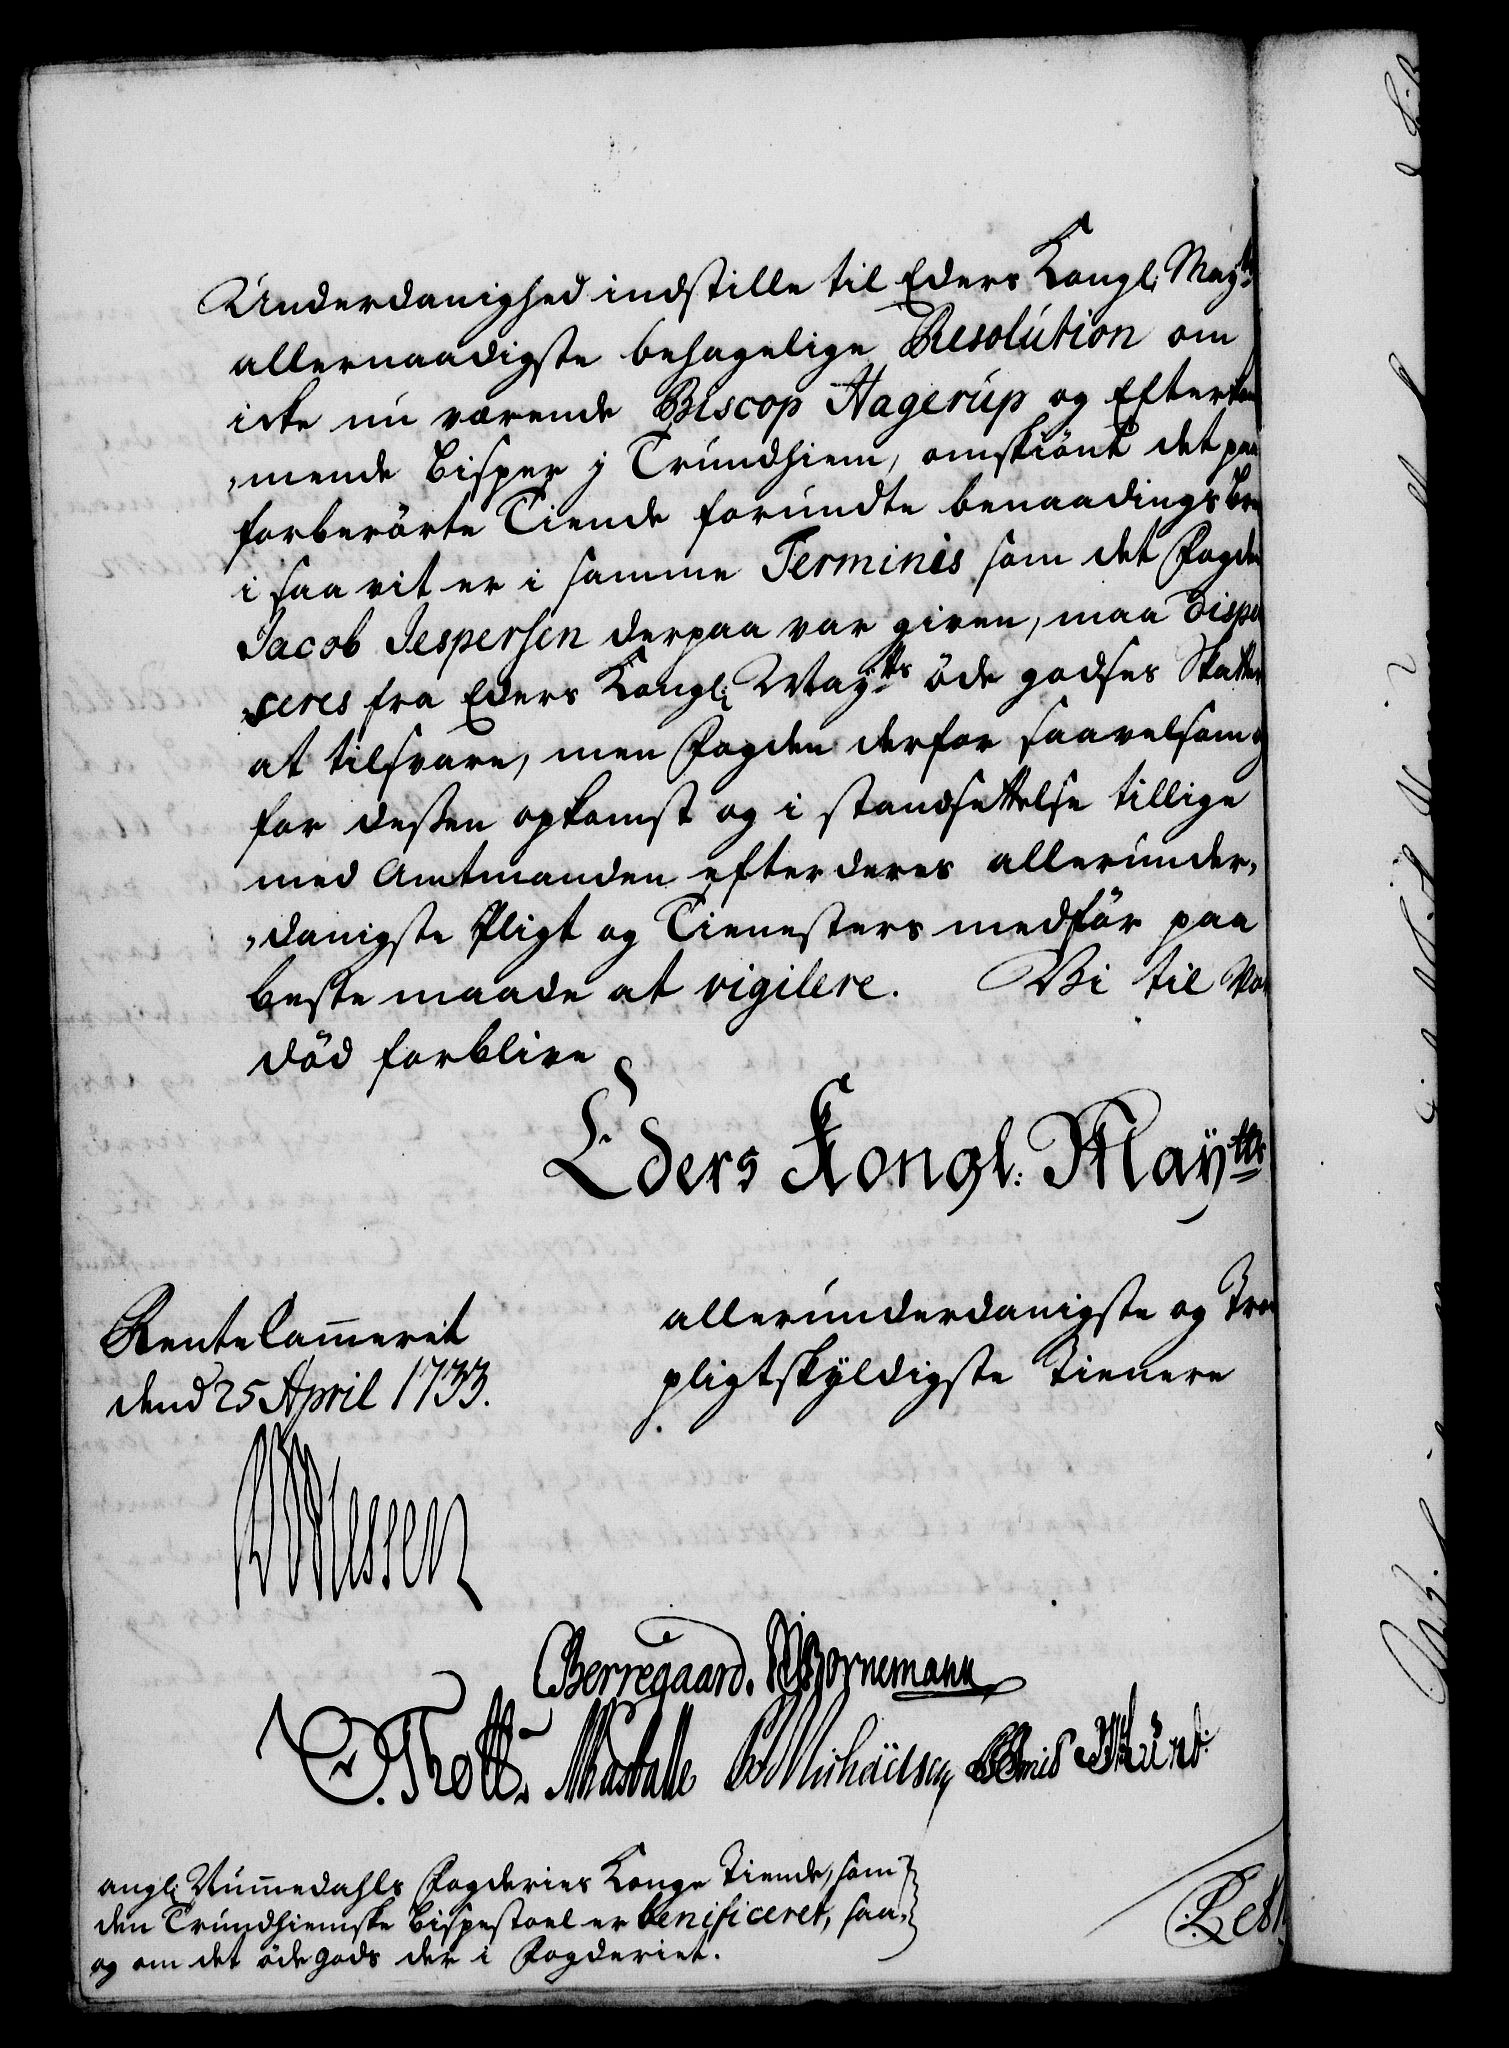 Underdanighed indstille til Eders Kongl: May:ts
allernaadigste behagelige Resolution om
icke nu værende Biscop Hagerup og Efterkom
,mende Bisper j Trundhiem, omskiönt det paa
forberörte Tiende forundte benaadings bre
i saa vit er i samme Terminis som det Fogden
Jacob Jespersen derpaa var given, maa dispen
,seres fra Eders Kongl: May:ts öde godses Skatter
at tilsvare, men Fogden derfor saavelsom og
for dessen opkomst og i standsettelse tillige
med Amtmanden efter deres allerunder,
,danigste Pligt og Tienesters medför paa
beste maade at vigilere. Vi til Vor
död forblive
Eders Kongl: Maÿtts
Rente Cammeret
dend 25 April 1733.
allerunderdanigste og Troe
pligtskyldigste Tienere
Berregaard. Bornemann
Thott.
angl: Nummedahls Fogderies Konge Tiende, som
den Trundhiemske Bispestoel er benificeret, saa,
og om det öde gods der i Fogderiet.